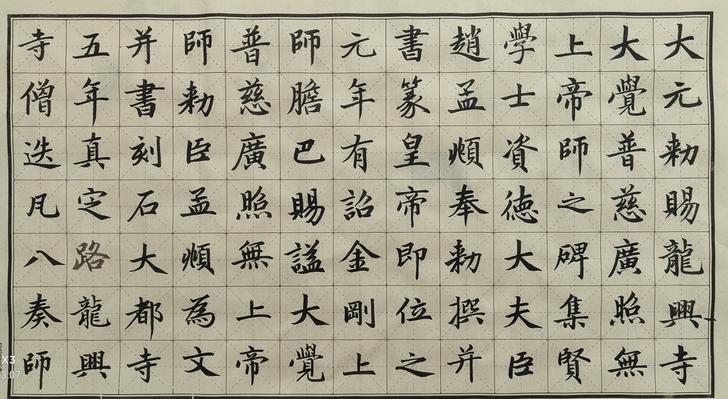 大元勅賜龍興寺
大覺普慈廣照無
上帝師之碑集賢
學士資德大夫臣
趙孟頫奉勅撰并
書篆皇帝即位之
元年有詔金剛上
師膽巴賜謚大覺
普慈廣照無上帝
師勅臣孟頫為文
并書刻石大都寺
五年真定路龍興
寺僧迭凡八奏師
X3
3:07